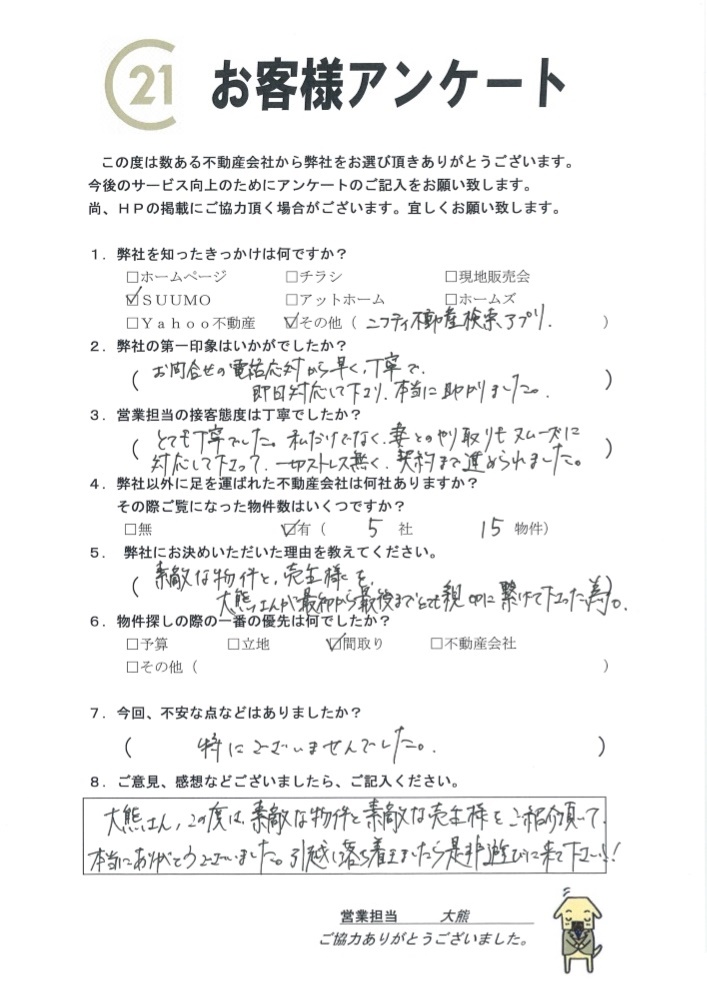 21 お客様アンケート
この度は数ある不動産会社から弊社をお選び頂きありがとうございます。
今後のサービス向上のためにアンケートのご記入をお願い致します。
尚、ＨＰの掲載にご協力頂く場合がございます。宜しくお願い致します。
１．弊社を知ったきっかけは何ですか？
□ホームページ □チラシ □現地販売会
☑ＳＵＵＭＯ □アットホーム □ホームズ
□Ｙａｈｏｏ不動産 ☑その他（ ニフティ不動産検索アプリ. ）
２．弊社の第一印象はいかがでしたか？
( お問合せの電話応対から早く、丁寧で、
即日対応して下さり、本当に助かりました。 )
３．営業担当の接客態度は丁寧でしたか？
( とても丁寧でした。私だけでなく、妻とのやり取りもスムーズに
対応して下さって、一切ストレス無く、契約まで進められました。 )
４．弊社以外に足を運ばれた不動産会社は何社ありますか？
その際ご覧になった物件数はいくつですか？
□無 ☑有（ 5 社 15 物件）
５． 弊社にお決めいただいた理由を教えてください。
( 素敵な物件と、売主様を、
大熊さんが最初から最後までとても親身に繋げて下さった為。 )
６．物件探しの際の一番の優先は何でしたか？
□予算 □立地 ☑間取り □不動産会社
□その他（ ）
７．今回、不安な点などはありましたか？
( 特にございませんでした。 )
８．ご意見、感想などございましたら、ご記入ください。
大熊さん、この度は、素敵な物件と素敵な売主様をご紹介頂いて、
本当にありがとうございました。引越し落ち着きましたら是非遊びに来て下さい!!
営業担当 大熊
ご協力ありがとうございました。